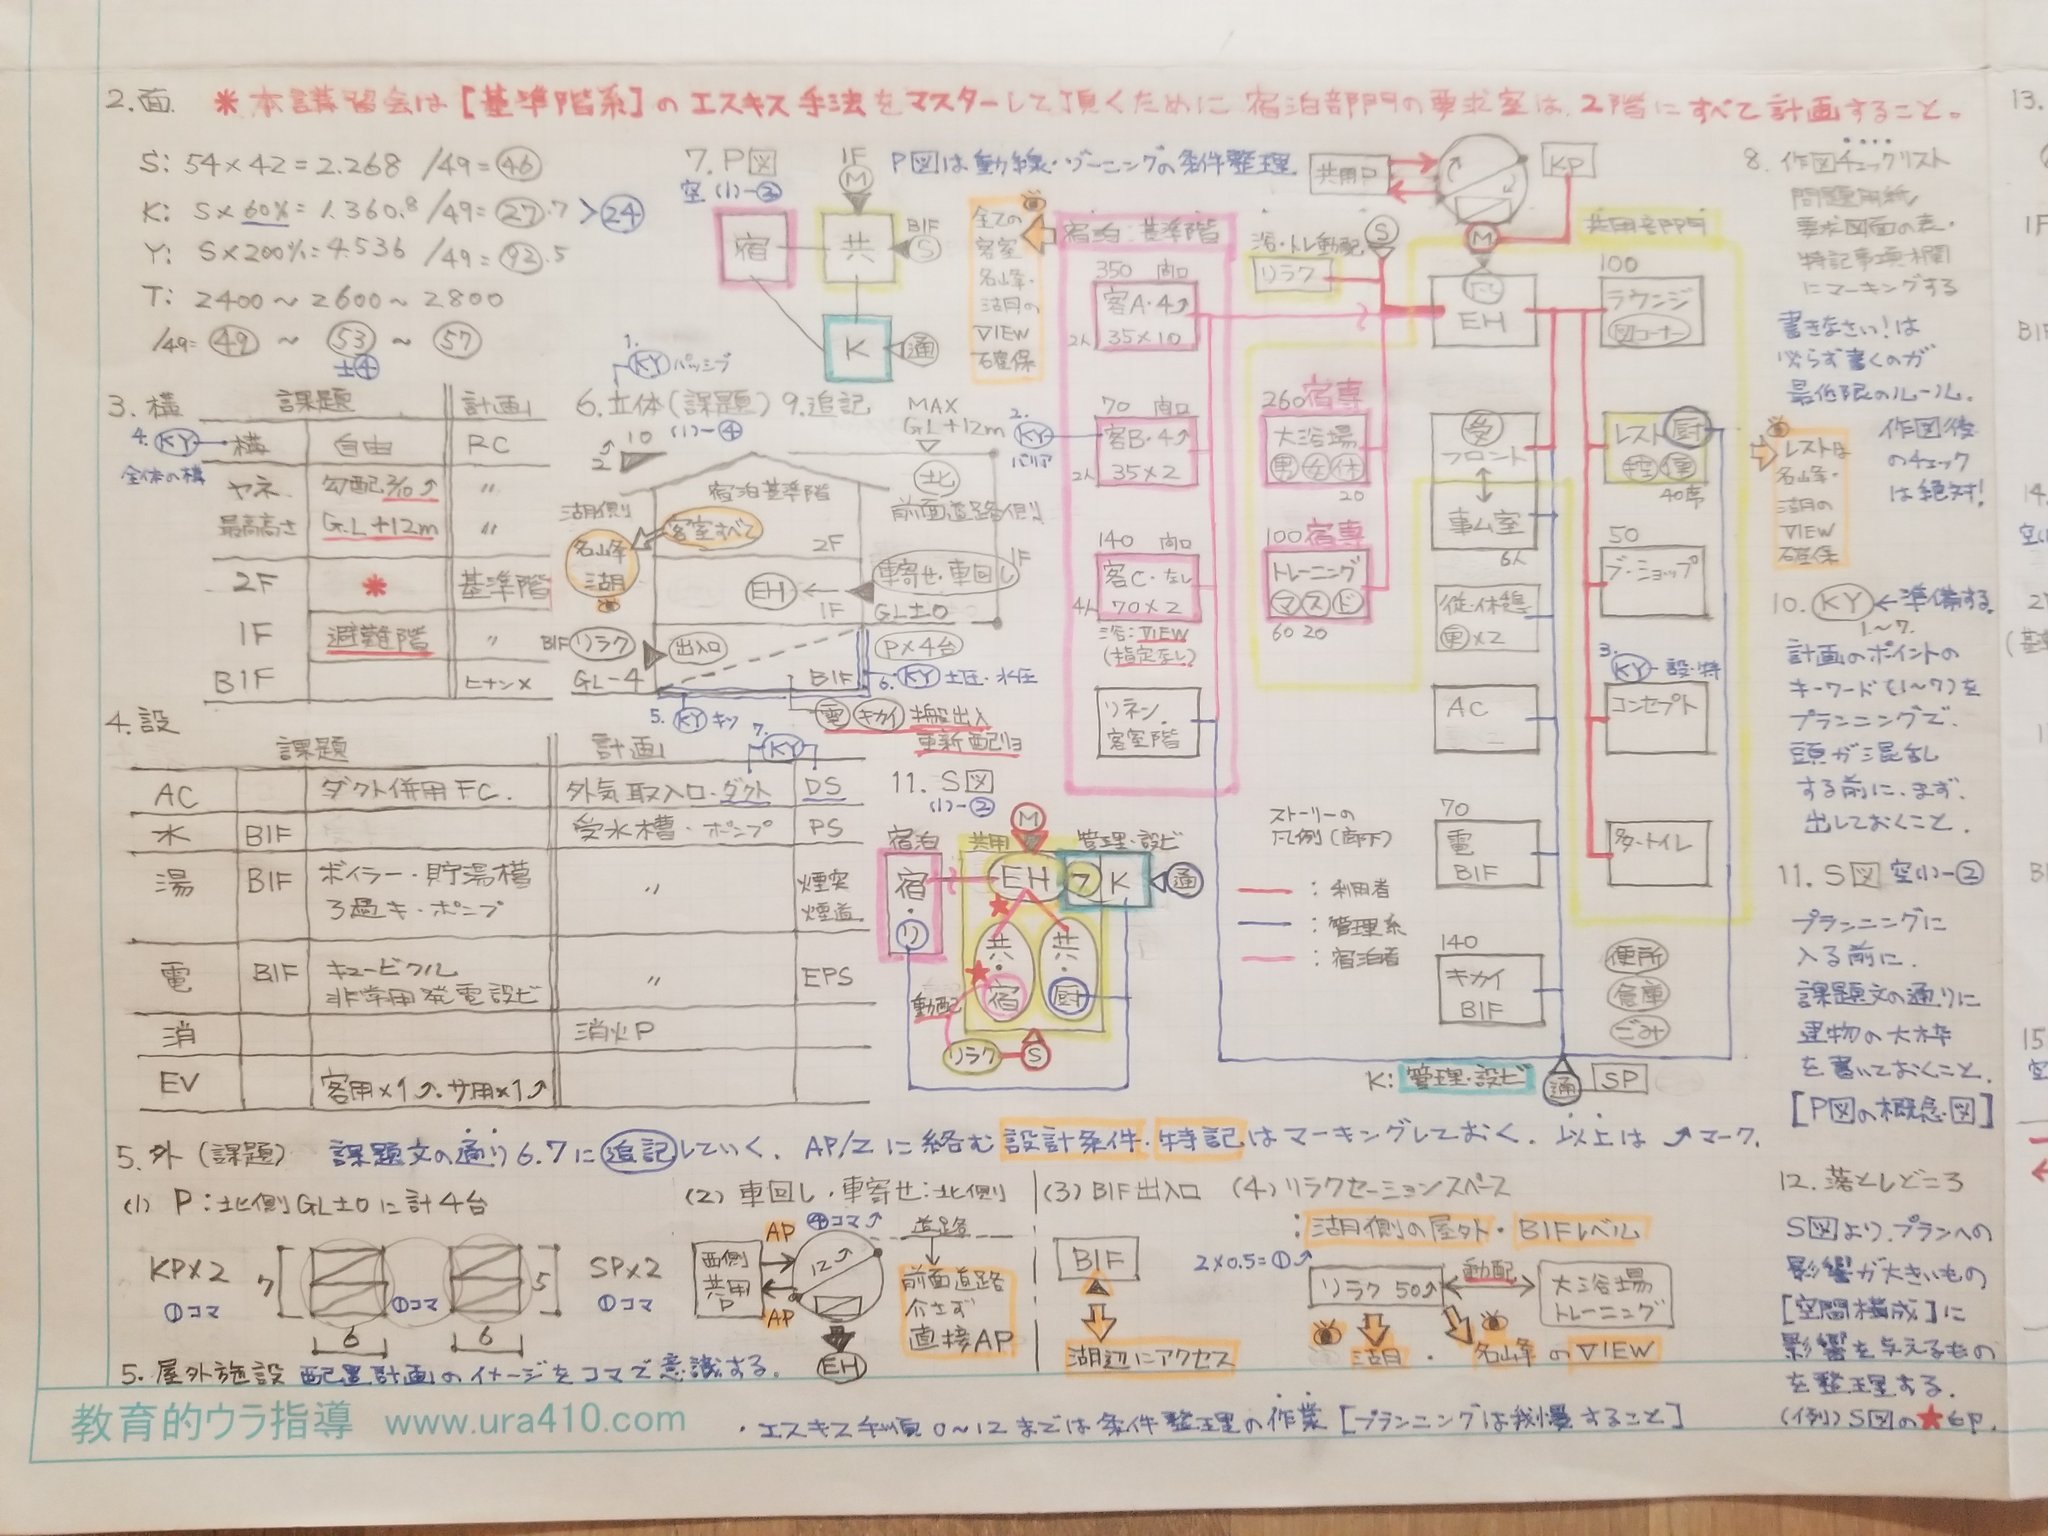 2.面. ＊本講習会は[基準階系]のエスキス手法をマスターして頂くために 宿泊部門の要求室は、2階にすべて計画すること。
S: 54×42=2.268 /49=㊻
K: S×60%=1.360.8 /49=㉗.7 >㉔
Y: S×200%=4.536 /49=92.5
T: 2400〜2600〜2800
/49= ㊾ 〜 53 〜 57
±④
3. 構
課題 計画
4. KY 構 自由 RC
全体の構
ヤネ 勾配2/10 〃
最高高さ G.L+12m 〃
2F ＊ 基準階
1F 避難階 〃
B1F ヒナン×
4. 設
課題 計画 7. KY
AC ダクト併用FC. 外気取入口・ダクト DS
水 B1F 受水槽・ポンプ PS
湯 B1F ボイラー・貯湯槽 〃 煙突
ろ過キ・ポンプ 煙道
電 B1F キュービクル 〃 EPS
非常用発電設ビ
消 消火P
EV 客用×1 サ用×1
7. P図
空.(1)-③
1F
M
P図は動線・ゾーニングの条件整理.
宿 共 B1F S
K 通
1. KY パッシブ
6. 立体(課題) 9.追記
(1)-④
MAX
GL+12m
10
2
北
宿泊基準階
湖側
前面道路側
名山峰
湖
客室すべて
2F
車寄せ・車回し 1F
EH 1F GL±0
B1F リラク 出入口
P×4台
GL-4 B1F
6. KY 土圧・水圧
5. KY キソ
電 キカイ 搬出入
更新配リョ
全ての
客室
名山峰・
湖の
VIEW
確保
宿泊:基準階
350 南口
客A・4
2人 35×10
2. KY
バリア
70 南口
客B・4
2人 35×2
140 南口
客C・なし
4人 70×2
浴:VIEW
(指定なし)
リネン.
客室階
共用P
KP
M
S
浴・トレ動配
リラク
260宿専
大浴場
男 女 休
20
100宿専
トレーニング
マ ス ド
60 20
共用部門
EH
受
フロント
事ム室
6人
従・休憩
更×2
AC
70
電
B1F
140
キカイ
B1F
100
ラウンジ
図コーナー
レスト 厨
40席
50
ブ・ショップ
3. KY 設・特
コンセプト
多・トイレ
便所
倉庫
ごみ
レストは
名山峰・
湖の
VIEW
確保
ストーリーの
凡例(廊下)
: 利用者
: 管理系
: 宿泊者
K: 管理・設ビ 通 SP
11. S図
(1)-②
M
宿泊 共用 管理・設ビ
宿・リ EH フ K 通
共・宿 共・厨
動配
リラク S
5. 外(課題) 課題文の通り6.7に追記していく. AP/Zに絡む設計条件・特記はマーキングしておく. 以上は マーク.
(1) P:北側GL±0に計4台
KP×2 7 5 SP×2
①コマ ①コマ ①コマ
6 6
(2) 車回し・車寄せ:北側
④コマ 道路
AP 12
西側
共用
P
AP
EH
前面道路
介さず
直接AP
(3) B1F出入口
B1F
湖辺にアクセス
(4) リラクセーションスペース
: 湖側の屋外・B1Fレベル
2×0.5=①
リラク 50 動配 大浴場
トレーニング
湖 ・ 名山峰のVIEW
5. 屋外施設 配置計画のイメージをコマで意識する.
教育的ウラ指導 www.ura410.com
・エスキス手順0〜12までは条件整理の作業[プランニングは我慢すること]
8. 作図チェックリスト
問題用紙
要求図面の表・
特記事項欄
にマーキングする
書きなさい!は
必らず書くのが
最低限のルール.
作図後
のチェック
は絶対!
10. KY ←準備する.
1.〜7.
計画のポイントの
キーワード(1〜7)を
プランニングで、
頭が混乱
する前に、まず、
出しておくこと.
11. S図 空(1)-②
プランニングに
入る前に.
課題文の通りに
建物の大枠
を書いておくこと.
[P図の概念図]
12. 落としどころ
S図より、プランへの
影響が大きいもの
[空間構成]に
影響を与えるもの
を整理する.
(例)S図の★6P.
13.
1F
B1F
14.
15.